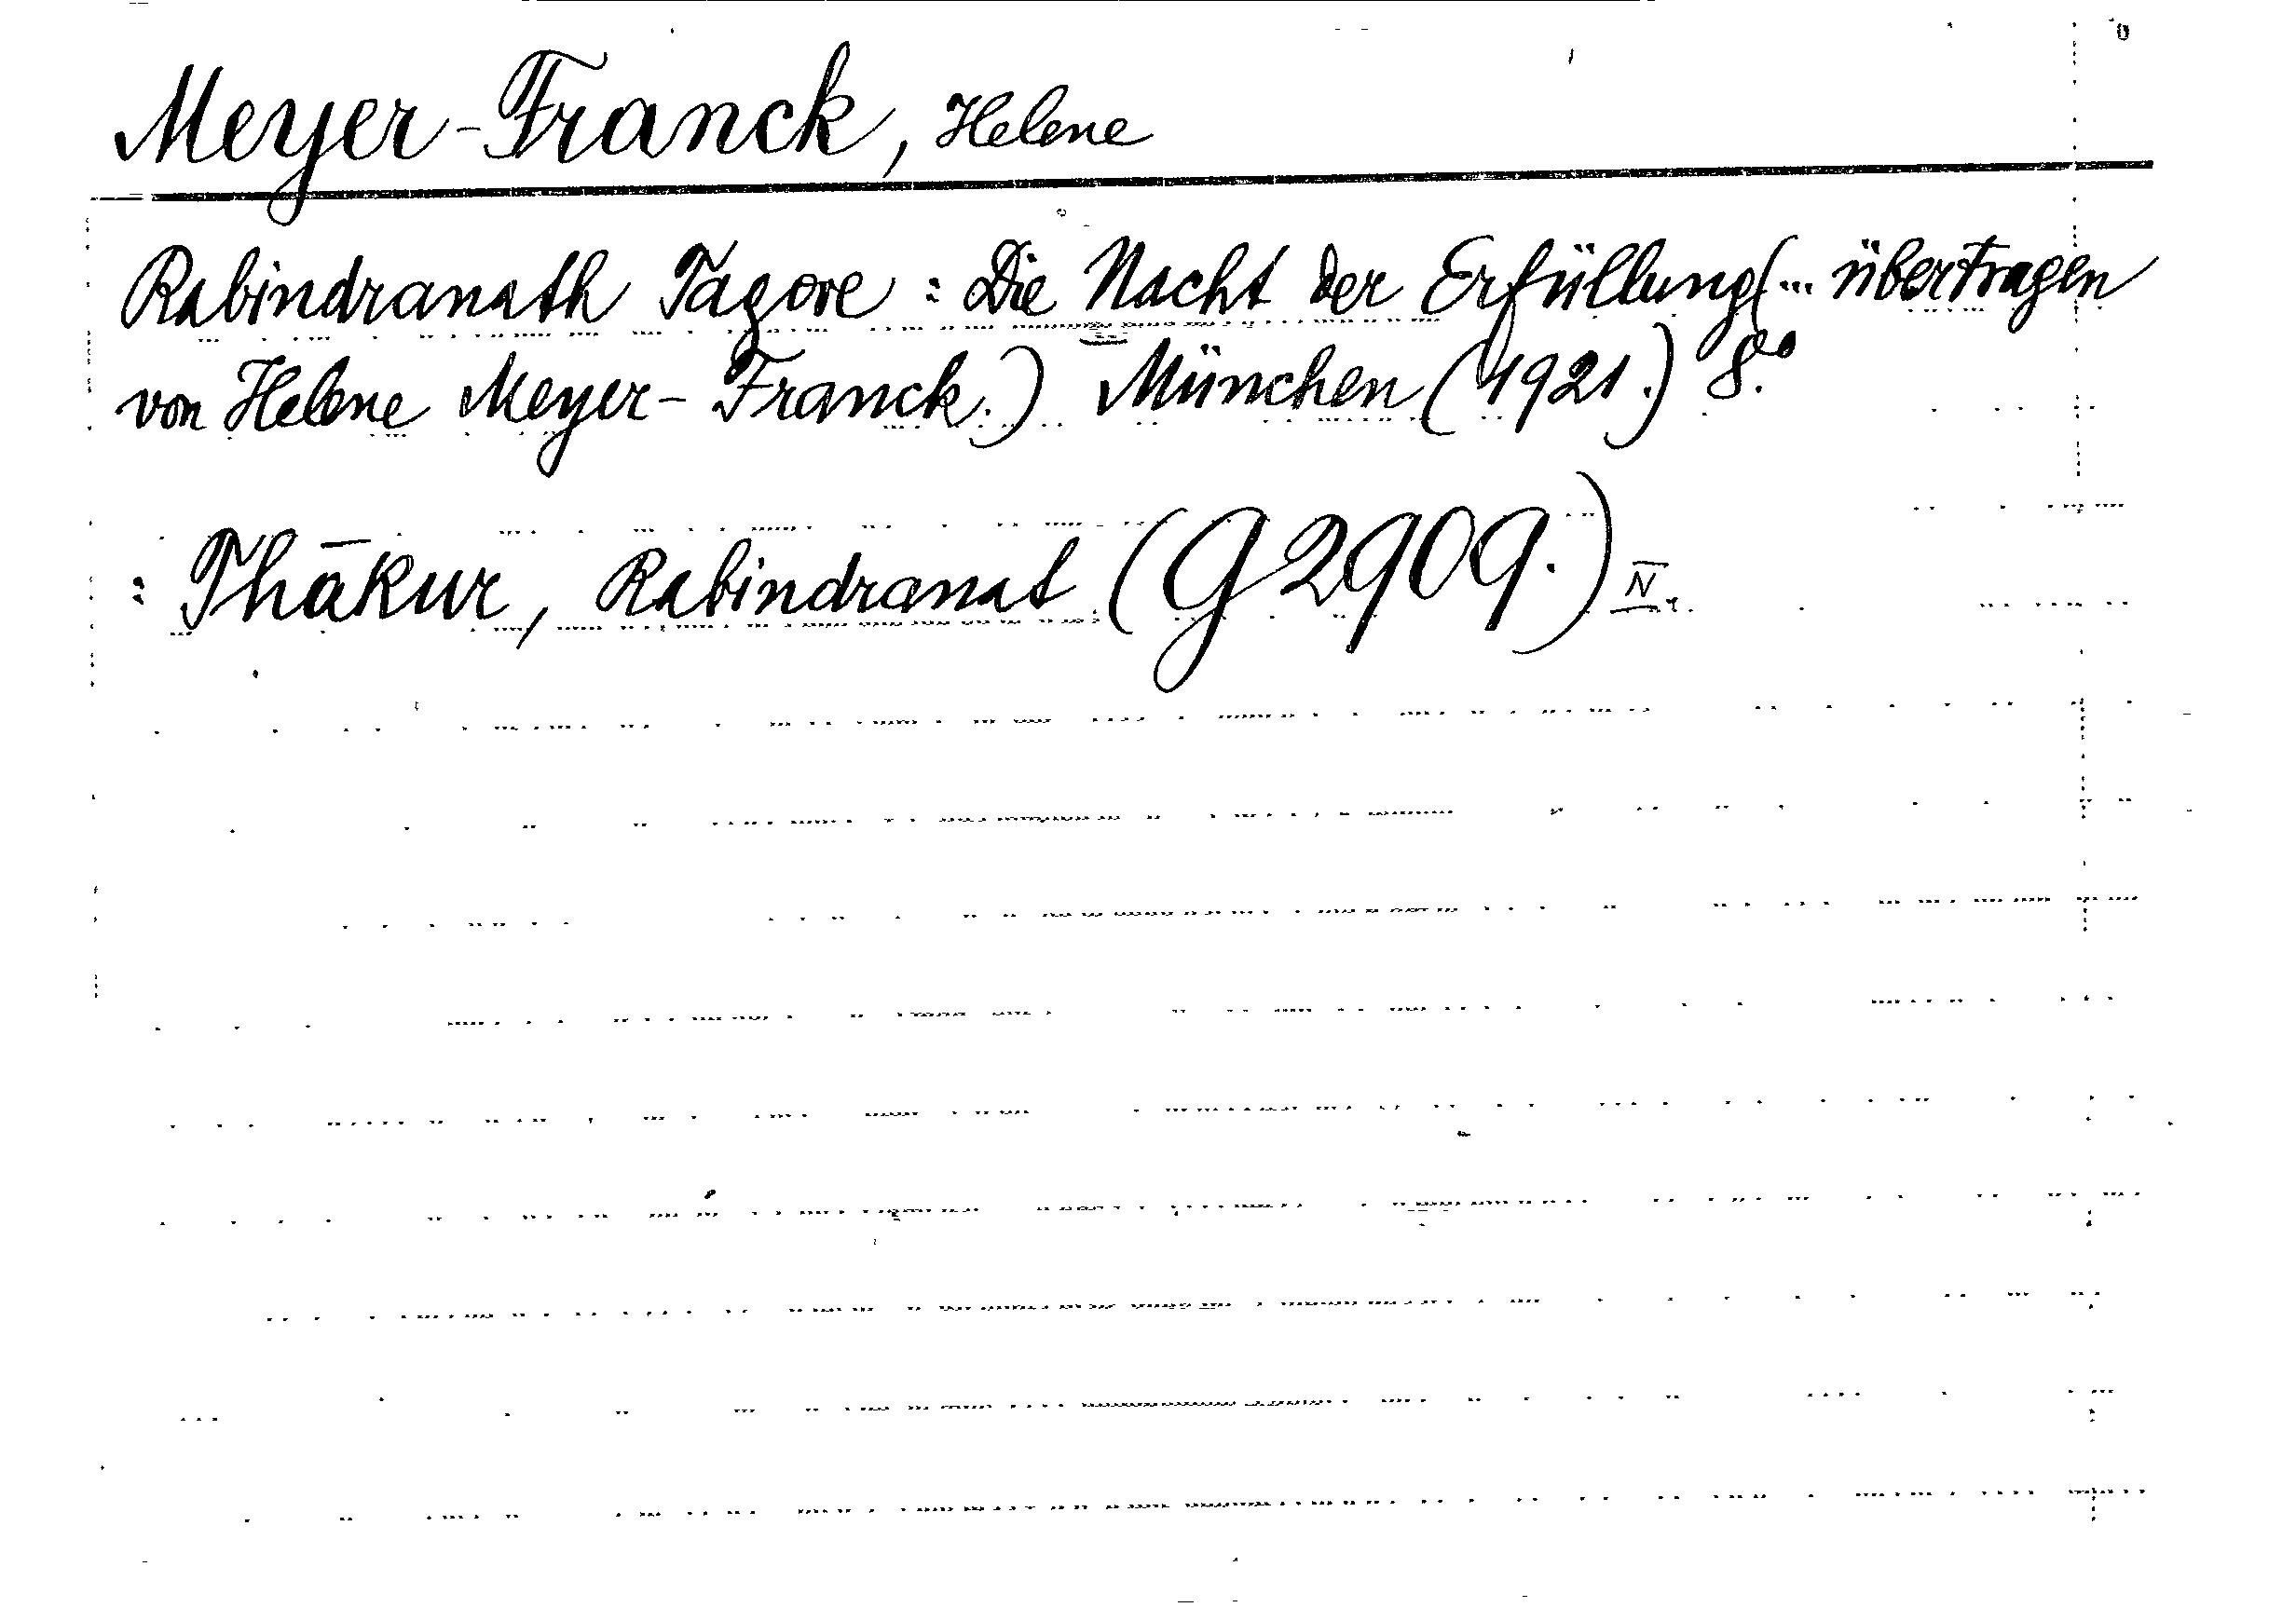 Meyer-Franck, Helene
Rabindranath Tagore: Die Nacht der Erfüllung (... übertragen
von Helene Meyer-Franck.) München (1921.) 8.°
: Thākur, Rabindranat (G 2909.) IV.